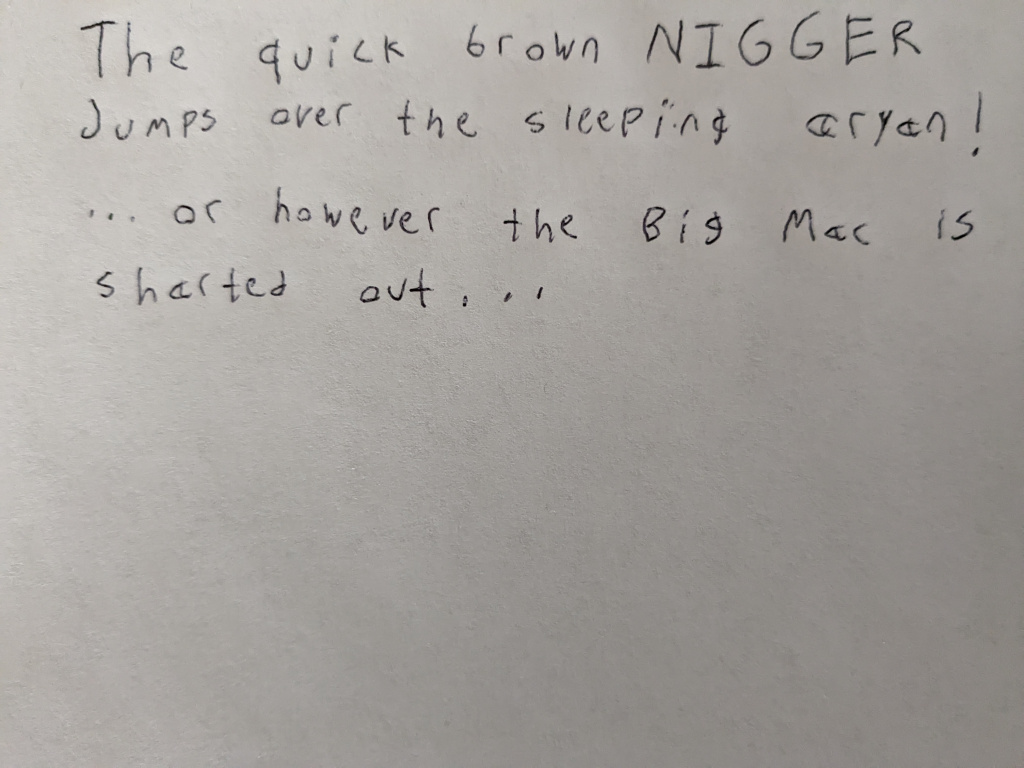 The quick brown NIGGER
Jumps over the sleeping aryan!
... or however the Big Mac is
sharted out...